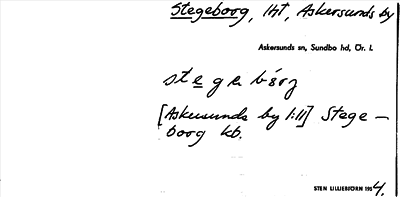 Stegeborg, lht, Askersunds by
Askersunds sn, Sundbo hd, Ör. l.
[Askersunds by 1:11] Stege-
borg kb.
STEN LILLIEBJÖRN 1954.